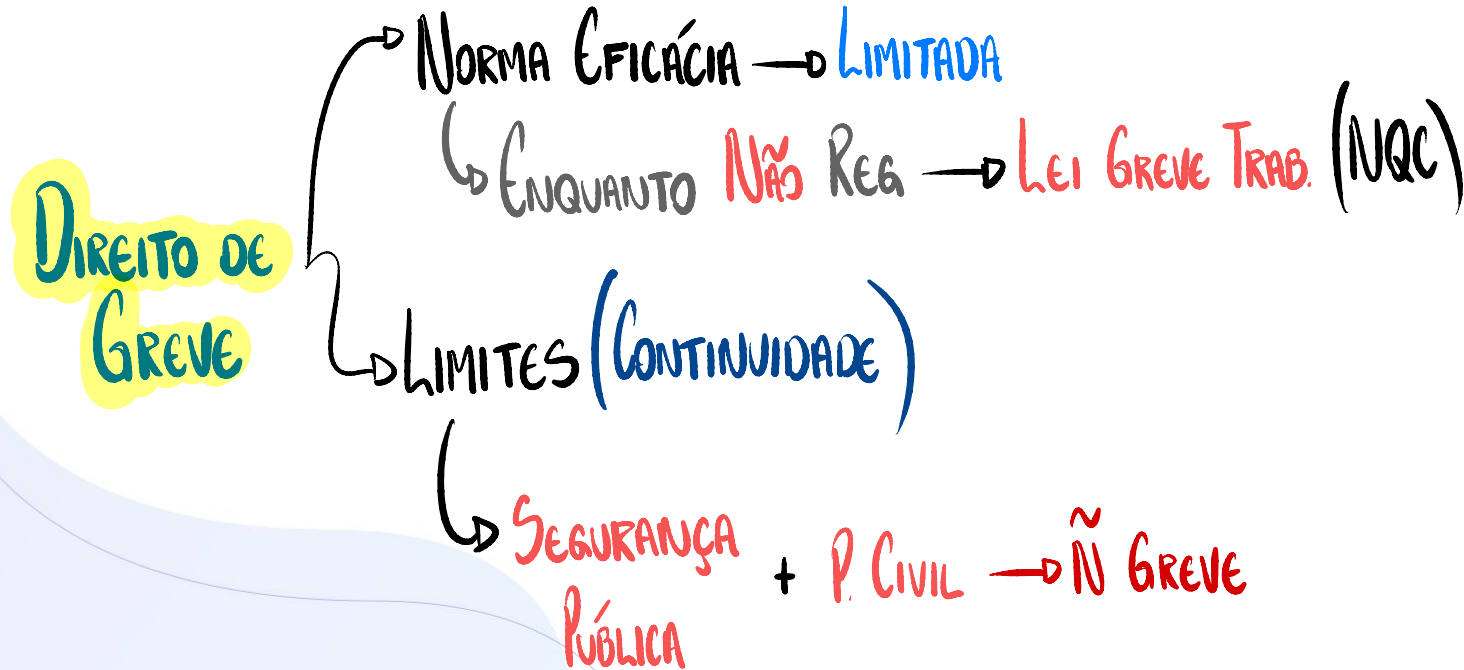 DIREITO DE
GREVE
NORMA EFICÁCIA → LIMITADA
ENQUANTO NÃO REG → LEI GREVE TRAB. (NQC)
LIMITES (CONTINUIDADE)
SEGURANÇA
PÚBLICA
+ P. CIVIL → Ñ GREVE